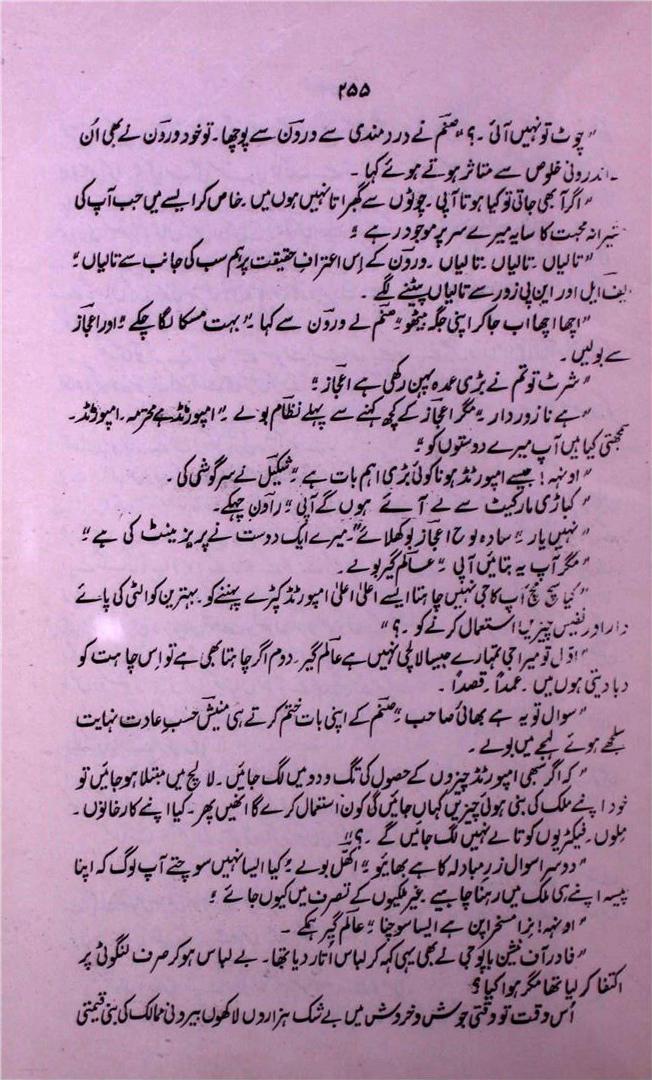 ۲۵۵
"چوٹ تو نہیں آئی ۔؟" صنم نے دردمندی سے ورون سے پوچھا۔ تو خود ورون نے بھی اُن
اندرونی خلوص سے متاثر ہوتے ہوئے کہا ۔
"اگر آ بھی جاتی تو کیا ہوتا آپی ۔ چوٹوں سے گھبراتا نہیں ہوں میں ۔ خاص کر ایسے میں جب آپ کی
محبت کا سایہ میرے سر پر موجود رہے "
"تالیاں ۔ تالیاں ۔ تالیاں ۔ ورون کے اِس اعترافِ حقیقت پر ہم سب کی جانب سے تالیاں "
ایل اور این پی زور سے تالیاں پیٹنے لگے ۔
"اچھا اچھا اب جا کر اپنی جگہ بیٹھو" صنم نے ورون سے کہا " بہت مسکا لگا چکے " اور اعجاز
سے بولیں ۔
"شرٹ تو تم نے بڑی عمدہ پہن رکھی ہے اعجاز "
"ہے نا زوردار " مگر اعجاز کے کچھ کہنے سے پہلے نظام بولے " امپورٹڈ ہے محترمہ ۔ امپورٹڈ ۔
سمجھتی کیا ہیں آپ میرے دوستوں کو "
"اونہہ! جیسے امپورٹڈ ہونا کوئی بڑی اہم بات ہے " شکیل نے سرگوشی کی ۔
"کباڑی مارکیٹ سے لے آئے ہوں گے آپی " راون چہکے ۔
"نہیں یار " سادہ لوح اعجاز بوکھلائے " میرے ایک دوست نے پریزینٹ کی ہے "
"مگر آپ یہ بتائیں آپی " عالم گیر بولے ۔
"کیا سچ مچ آپ کا جی نہیں چاہتا ایسے اعلیٰ اعلیٰ امپورٹڈ کپڑے پہننے کو ۔ بہترین کوالٹی کی پائے
دار اور نفیس چیزیں استعمال کرنے کو ۔؟"
"اوّل تو میرا جی تمہارے جیسا لالچی نہیں ہے عالم گیر ۔ دوم اگر چاہتا بھی ہے تو اِس چاہت کو
دبا دیتی ہوں میں ۔ عمداً ۔ قصداً ۔
"سوال تو یہ ہے بھائی صاحب " صنم کے اپنی بات ختم کرتے ہی منیش حسبِ عادت نہایت
سلجھے ہوئے لہجے میں بولے ۔
"کہ اگر سبھی امپورٹڈ چیزوں کے حصول کی تگ و دو میں لگ جائیں ۔ لالچ میں مبتلا ہو جائیں تو
خود اپنے ملک کی بنی ہوئی چیزیں کہاں جائیں گی کون استعمال کرے گا انھیں پھر ۔ کیا اپنے کارخانوں ۔
ملوں ۔ فیکٹریوں کو تالے نہیں لگ جائیں گے ۔؟"
"دوسرا سوال زرِ مبادلہ کا ہے بھائیو " بولے " کیا ایسا نہیں سوچتے آپ لوگ کہ اپنا
پیسہ اپنے ہی ملک میں رہنا چاہیے ۔ غیر ملکیوں کے تصرف میں کیوں جائے "
"اونہہ! نرا مسخرا پن ہے ایسا سوچنا " عالم گیر ہنکے ۔
"فادر آف نیشن باپو جی نے بھی یہی کہہ کر لباس اُتار دیا تھا ۔ بے لباس ہو کر صرف لنگوٹی پر
اکتفا کر لیا تھا مگر ہوا کیا ؟
اُس وقت تو وقتی جوش و خروش میں بے شک ہزاروں لاکھوں بیرونی ممالک کی بنی قیمتی